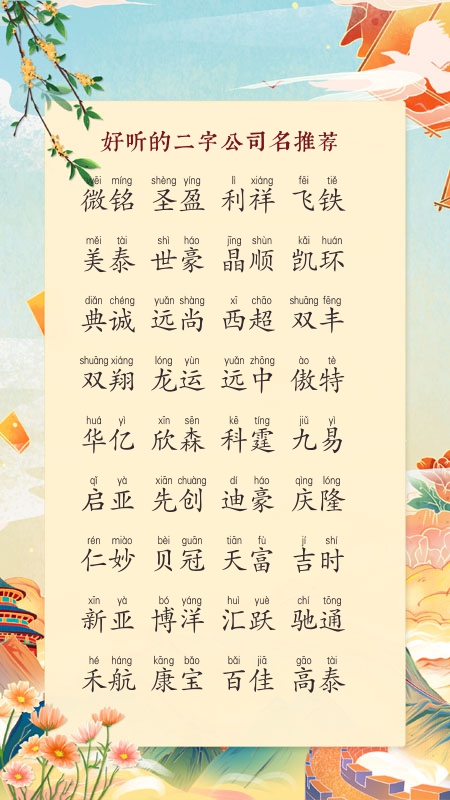 好听的二字公司名推荐
wēi míng shèng yíng lì xiáng fēi tiě
微铭 圣盈 利祥 飞铁
měi tài shì háo jīng shùn kǎi huán
美泰 世豪 晶顺 凯环
diǎn chéng yuǎn shàng xī chāo shuāng fēng
典诚 远尚 西超 双丰
shuāng xiáng lóng yùn yuǎn zhōng ào tè
双翔 龙运 远中 傲特
huá yì xīn sēn kē tíng jiǔ yì
华亿 欣森 科霆 九易
qǐ yà xiān chuàng dí háo qìng lóng
启亚 先创 迪豪 庆隆
rén miào bèi guān tiān fù jí shí
仁妙 贝冠 天富 吉时
xīn yà bó yáng huì yuè chí tōng
新亚 博洋 汇跃 驰通
hé háng kāng bǎo bǎi jiā gāo tài
禾航 康宝 百佳 高泰